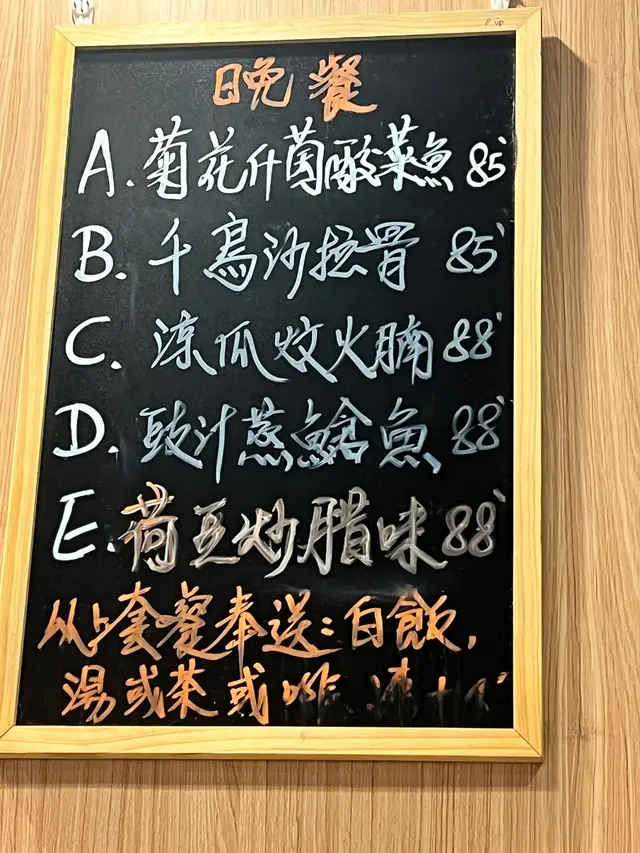 晚餐
A.菊花什菌酸菜魚 85
B.千島沙拉骨 85
C.涼瓜炆火腩 88
D.豉汁蒸鱠魚 88
E.荷豆炒腊味 88
以上套餐奉送:白飯,
湯或茶或啡